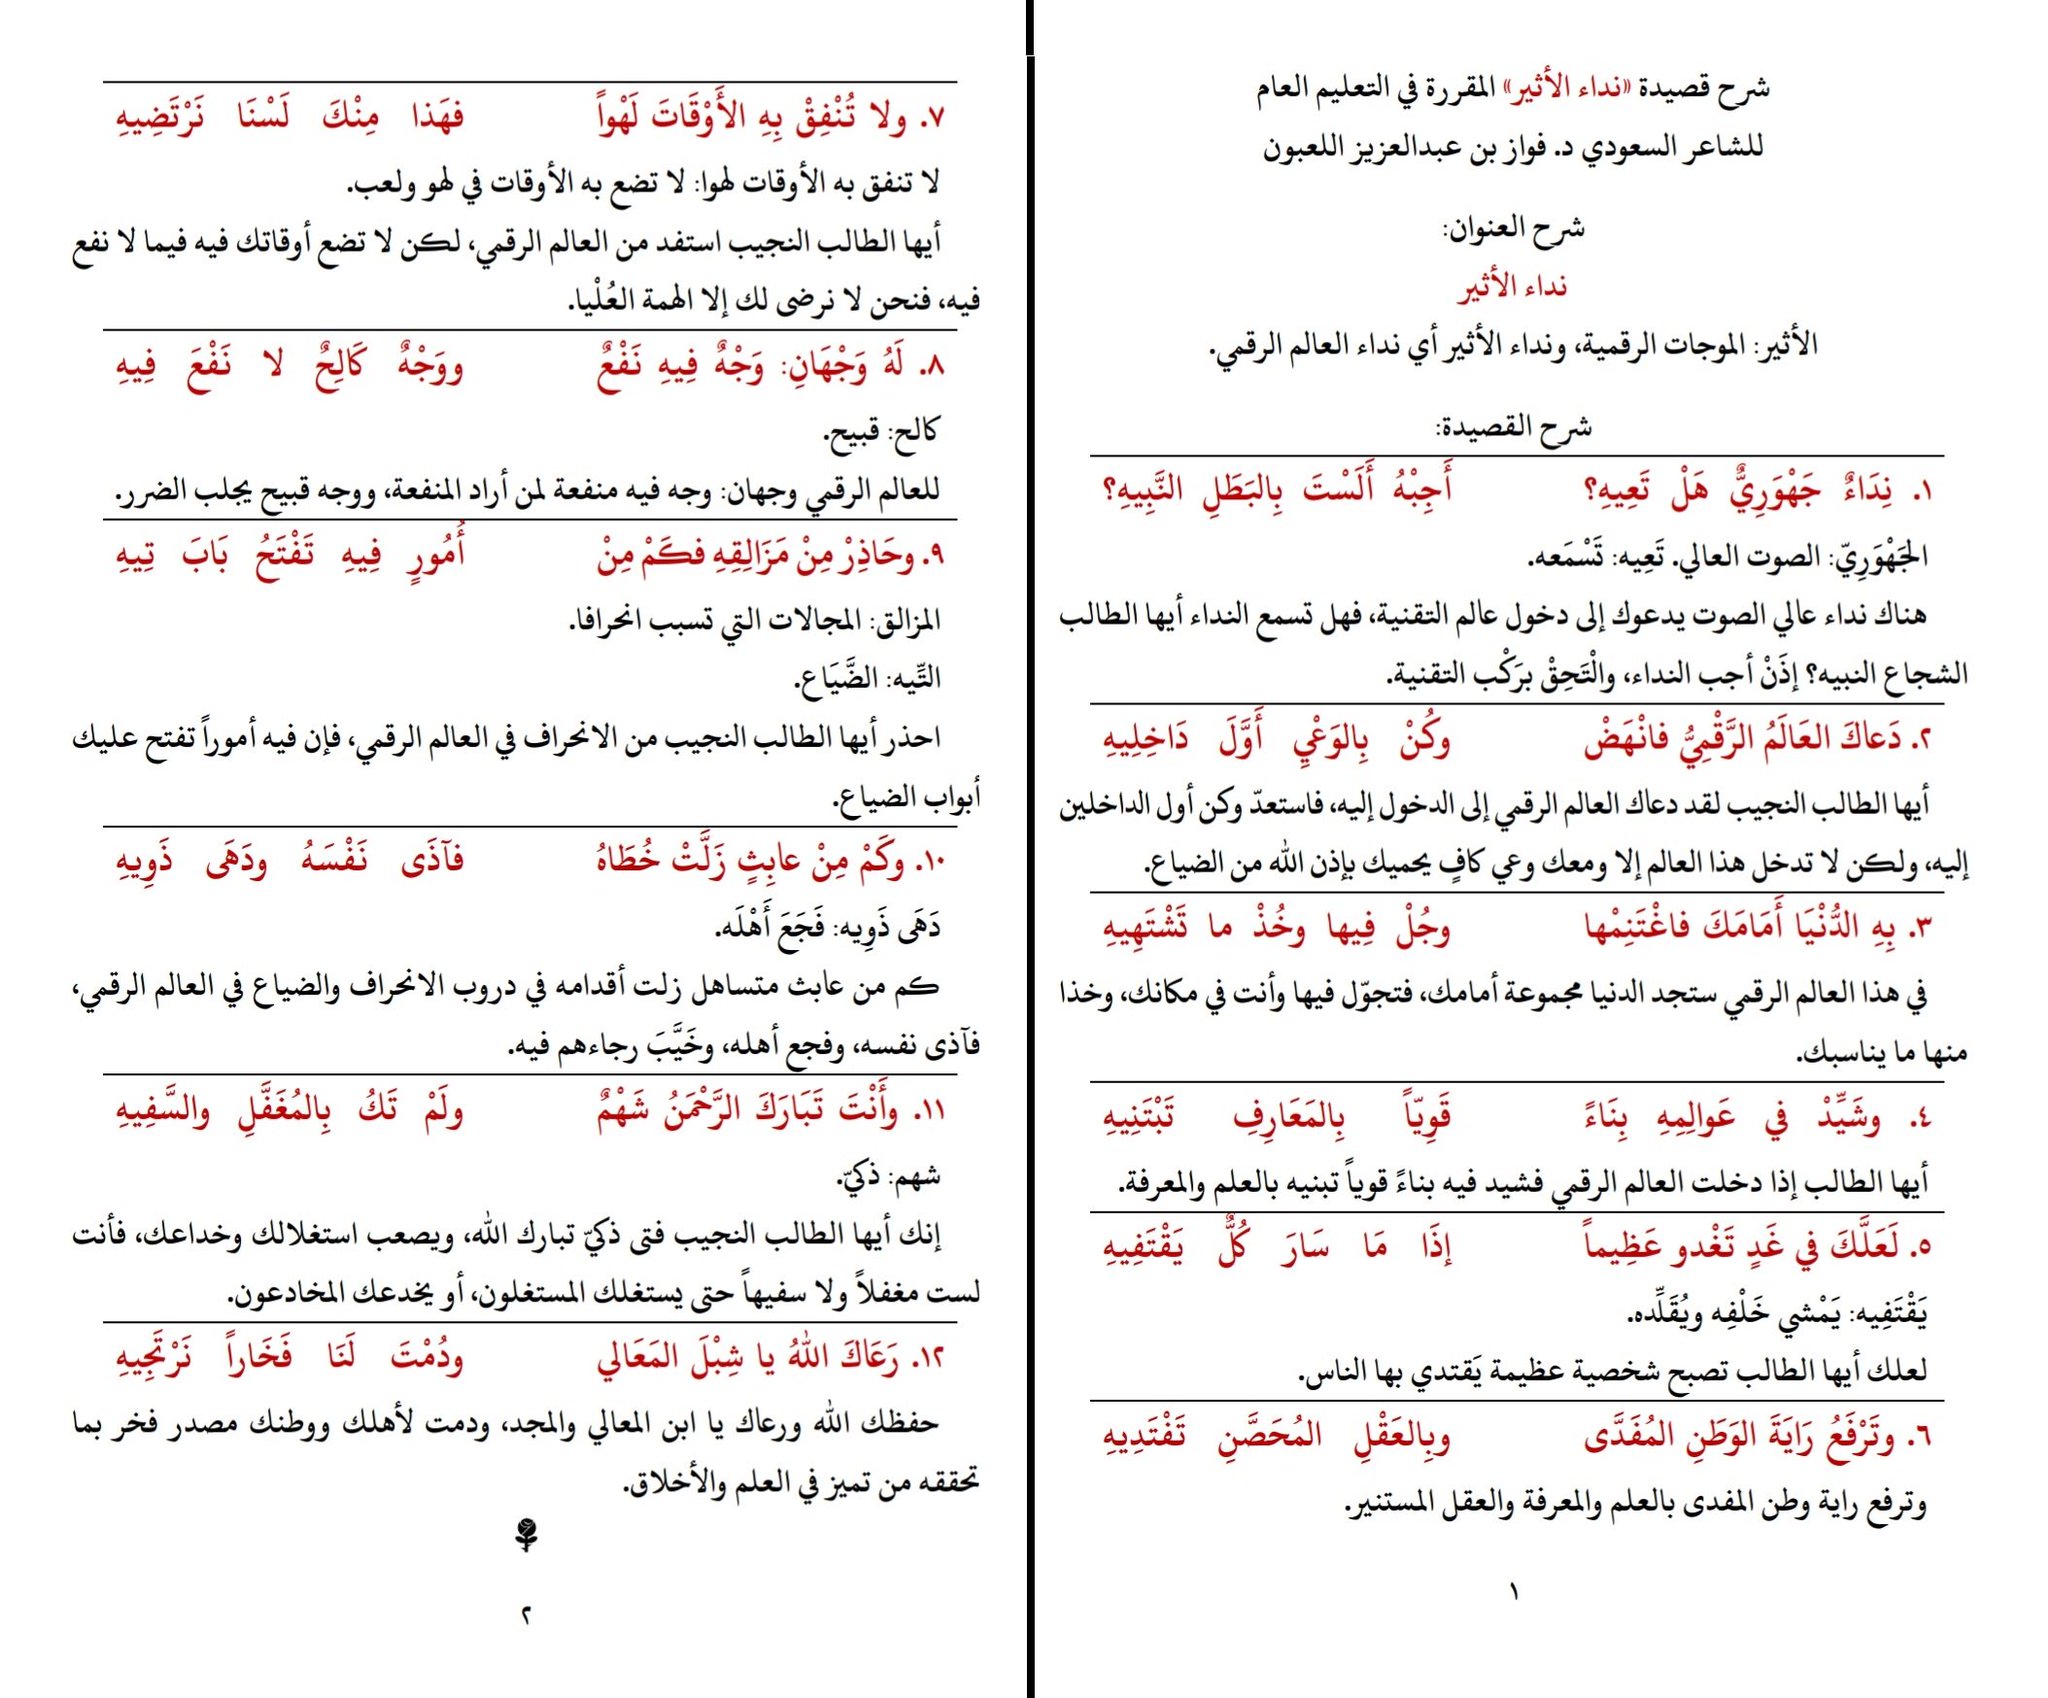 شرح قصيدة «نداء الأثير» المقررة في التعليم العام
للشاعر السعودي د. فواز بن عبدالعزيز اللعبون
شرح العنوان:
نداء الأثير
الأثير: الموجات الرقمية، ونداء الأثير أي نداء العالم الرقمي.
شرح القصيدة:
١. نِدَاءٌ جَهْوَرِيٌّ هَلْ تَعِيهِ؟ أَجِبْهُ أَلَسْتَ بِالبَطَلِ النَّبِيهِ؟
الجَهْوَرِيّ: الصوت العالي. تَعِيه: تَسْمَعه.
هناك نداء عالي الصوت يدعوك إلى دخول عالم التقنية، فهل تسمع النداء أيها الطالب
الشجاع النبيه؟ إذَنْ أجب النداء، والْتَحِقْ برَكْب التقنية.
٢. دَعاكَ العَالَمُ الرَّقْمِيُّ فانْهَضْ وكُنْ بِالوَعْيِ أَوَّلَ دَاخِلِيهِ
أيها الطالب النجيب لقد دعاك العالم الرقمي إلى الدخول إليه، فاستعدّ وكن أول الداخلين
إليه، ولكن لا تدخل هذا العالم إلا ومعك وعي كافٍ يحميك بإذن الله من الضياع.
٣. بِهِ الدُّنْيَا أَمَامَكَ فاغْتَنِمْها وجُلْ فِيها وخُذْ ما تَشْتَهِيهِ
في هذا العالم الرقمي ستجد الدنيا مجموعة أمامك، فتجوّل فيها وأنت في مكانك، وخذا
منها ما يناسبك.
٤. وشَيِّدْ في عَوالِمِهِ بِنَاءً قَوِيّاً بِالمَعَارِفِ تَبْتَنِيهِ
أيها الطالب إذا دخلت العالم الرقمي فشيد فيه بناءً قوياً تبنيه بالعلم والمعرفة.
٥. لَعَلَّكَ في غَدٍ تَغْدو عَظِيماً إذَا مَا سَارَ كُلٌّ يَقْتَفِيهِ
يَقْتَفِيه: يَمْشي خَلْفِه ويُقَلِّده.
لعلك أيها الطالب تصبح شخصية عظيمة يَقتدي بها الناس.
٦. وتَرْفَعُ رَايَةَ الوَطَنِ المُفَدَّى وبِالعَقْلِ المُحَصَّنِ تَفْتَدِيهِ
وترفع راية وطن المفدى بالعلم والمعرفة والعقل المستنير.
١
٧. ولا تُنْفِقْ بِهِ الأَوْقَاتَ لَهْواً فهَذا مِنْكَ لَسْنَا نَرْتَضِيهِ
لا تنفق به الأوقات لهوا: لا تضع به الأوقات في لهو ولعب.
أيها الطالب النجيب استفد من العالم الرقمي، لكن لا تضع أوقاتك فيه فيما لا نفع
فيه، فنحن لا نرضى لك إلا الهمة العُلْيا.
٨. لَهُ وَجْهَانِ: وَجْهٌ فِيهِ نَفْعٌ ووَجْهٌ كَالِحٌ لا نَفْعَ فِيهِ
كالح: قبيح.
للعالم الرقمي وجهان: وجه فيه منفعة لمن أراد المنفعة، ووجه قبيح يجلب الضرر.
٩. وحَاذِرْ مِنْ مَزَالِقِهِ فكَمْ مِنْ أُمُورٍ فِيهِ تَفْتَحُ بَابَ تِيهِ
المزالق: المجالات التي تسبب انحرافا.
التِّيه: الضَّيَاع.
احذر أيها الطالب النجيب من الانحراف في العالم الرقمي، فإن فيه أموراً تفتح عليك
أبواب الضياع.
١٠. وكَمْ مِنْ عابِثٍ زَلَّتْ خُطَاهُ فآذَى نَفْسَهُ ودَهَى ذَوِيهِ
دَهَى ذَوِيه: فَجَعَ أَهْلَه.
كم من عابث متساهل زلت أقدامه في دروب الانحراف والضياع في العالم الرقمي،
فآذى نفسه، وفجع أهله، وخَيَّبَ رجاءهم فيه.
١١. وأَنْتَ تَبَارَكَ الرَّحْمَنُ شَهْمٌ ولَمْ تَكُ بِالمُغَفَّلِ والسَّفِيهِ
شهم: ذكيّ.
إنك أيها الطالب النجيب فتى ذكيّ تبارك الله، ويصعب استغلالك وخداعك، فأنت
لست مغفلاً ولا سفيهاً حتى يستغلك المستغلون، أو يخدعك المخادعون.
١٢. رَعَاكَ اللهُ يا شِبْلَ المَعَالي ودُمْتَ لَنَا فَخَاراً نَرْتَجِيهِ
حفظك الله ورعاك يا ابن المعالي والمجد، ودمت لأهلك ووطنك مصدر فخر بما
تحققه من تميز في العلم والأخلاق.
٢